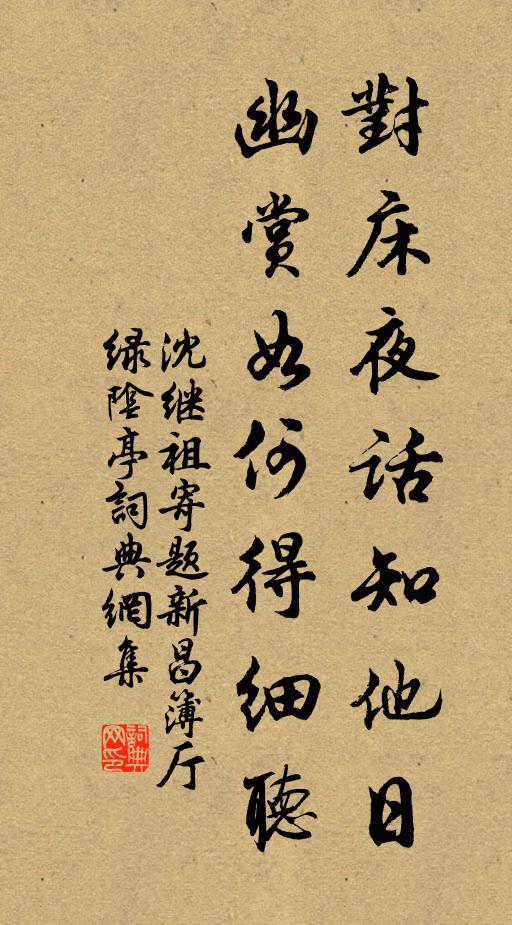 對床夜話知他日
幽賞如何得細聽
沈继祖寄题新昌簿厅
绿陰亭詞典網集
詞典网印